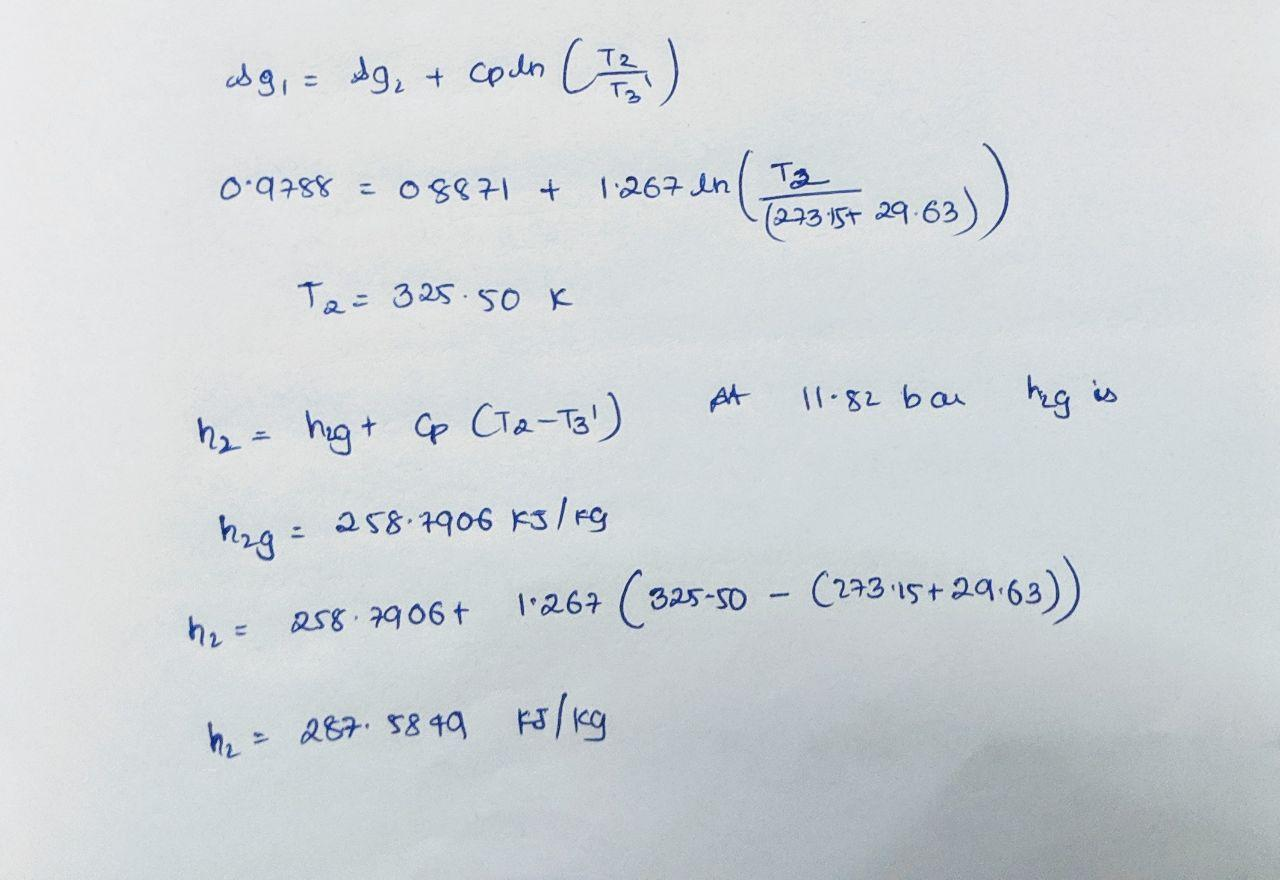 sg₁ = sg₂ + Cp ln (T2/T3')
0.9788 = 0.8871 + 1.267 ln (T2/(273.15+ 29.63))
T2 = 325.50 K
h2 = h2g + Cp (T2-T3') At 11.82 bar h2g is
h2g = 258.7906 KJ/Kg
h2 = 258.7906+ 1.267 (325.50 - (273.15+29.63))
h2 = 287.5849 KJ/Kg